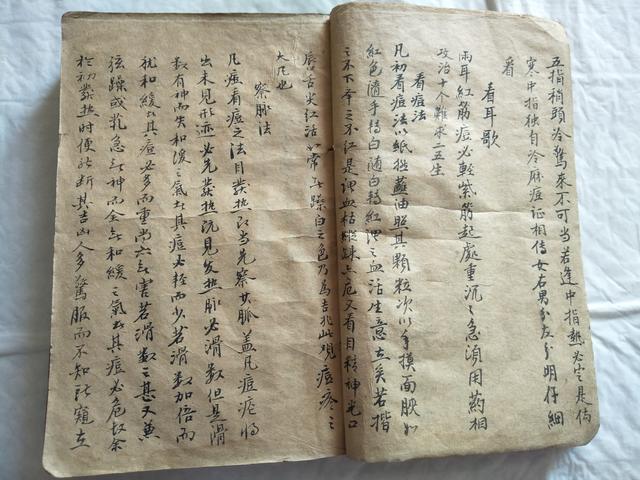 五指稍頭冷驚來不可当若逢中指熱必定是伤
寒中指独自冷麻痘证相传女右男分左分明仔細
看
看耳歌
兩耳紅筋痘必輕紫筋起處重沉沉急須用葯相
攻治十个難求一二生
看痘法
凡初看痘法以紙撚蘸油照其顆粒次以手摸面腴如
紅色隨手轉白随白轉紅謂之血活生意在矣若揩
之不下举之不红是謂血枯縱踈亦危又看目精神光口
唇舌尖红活如常無躁白之色乃為吉兆此观痘疹之
大凡也
察脉法
凡痘看痘之法自發热以当先察其脈盖凡痘疹将
出未見形迹必先發热既見发热脉必滑数但是滑
数有神而失和缓之氣者其痘必輕而少若滑数加倍而
犹和缓者其痘必多而重尚無害若滑数之甚又兼
弦躁或芤急無神而全無和緩之氣者其痘必危故余
於初發热时便能断其吉凶人多驚服而不知能窺在